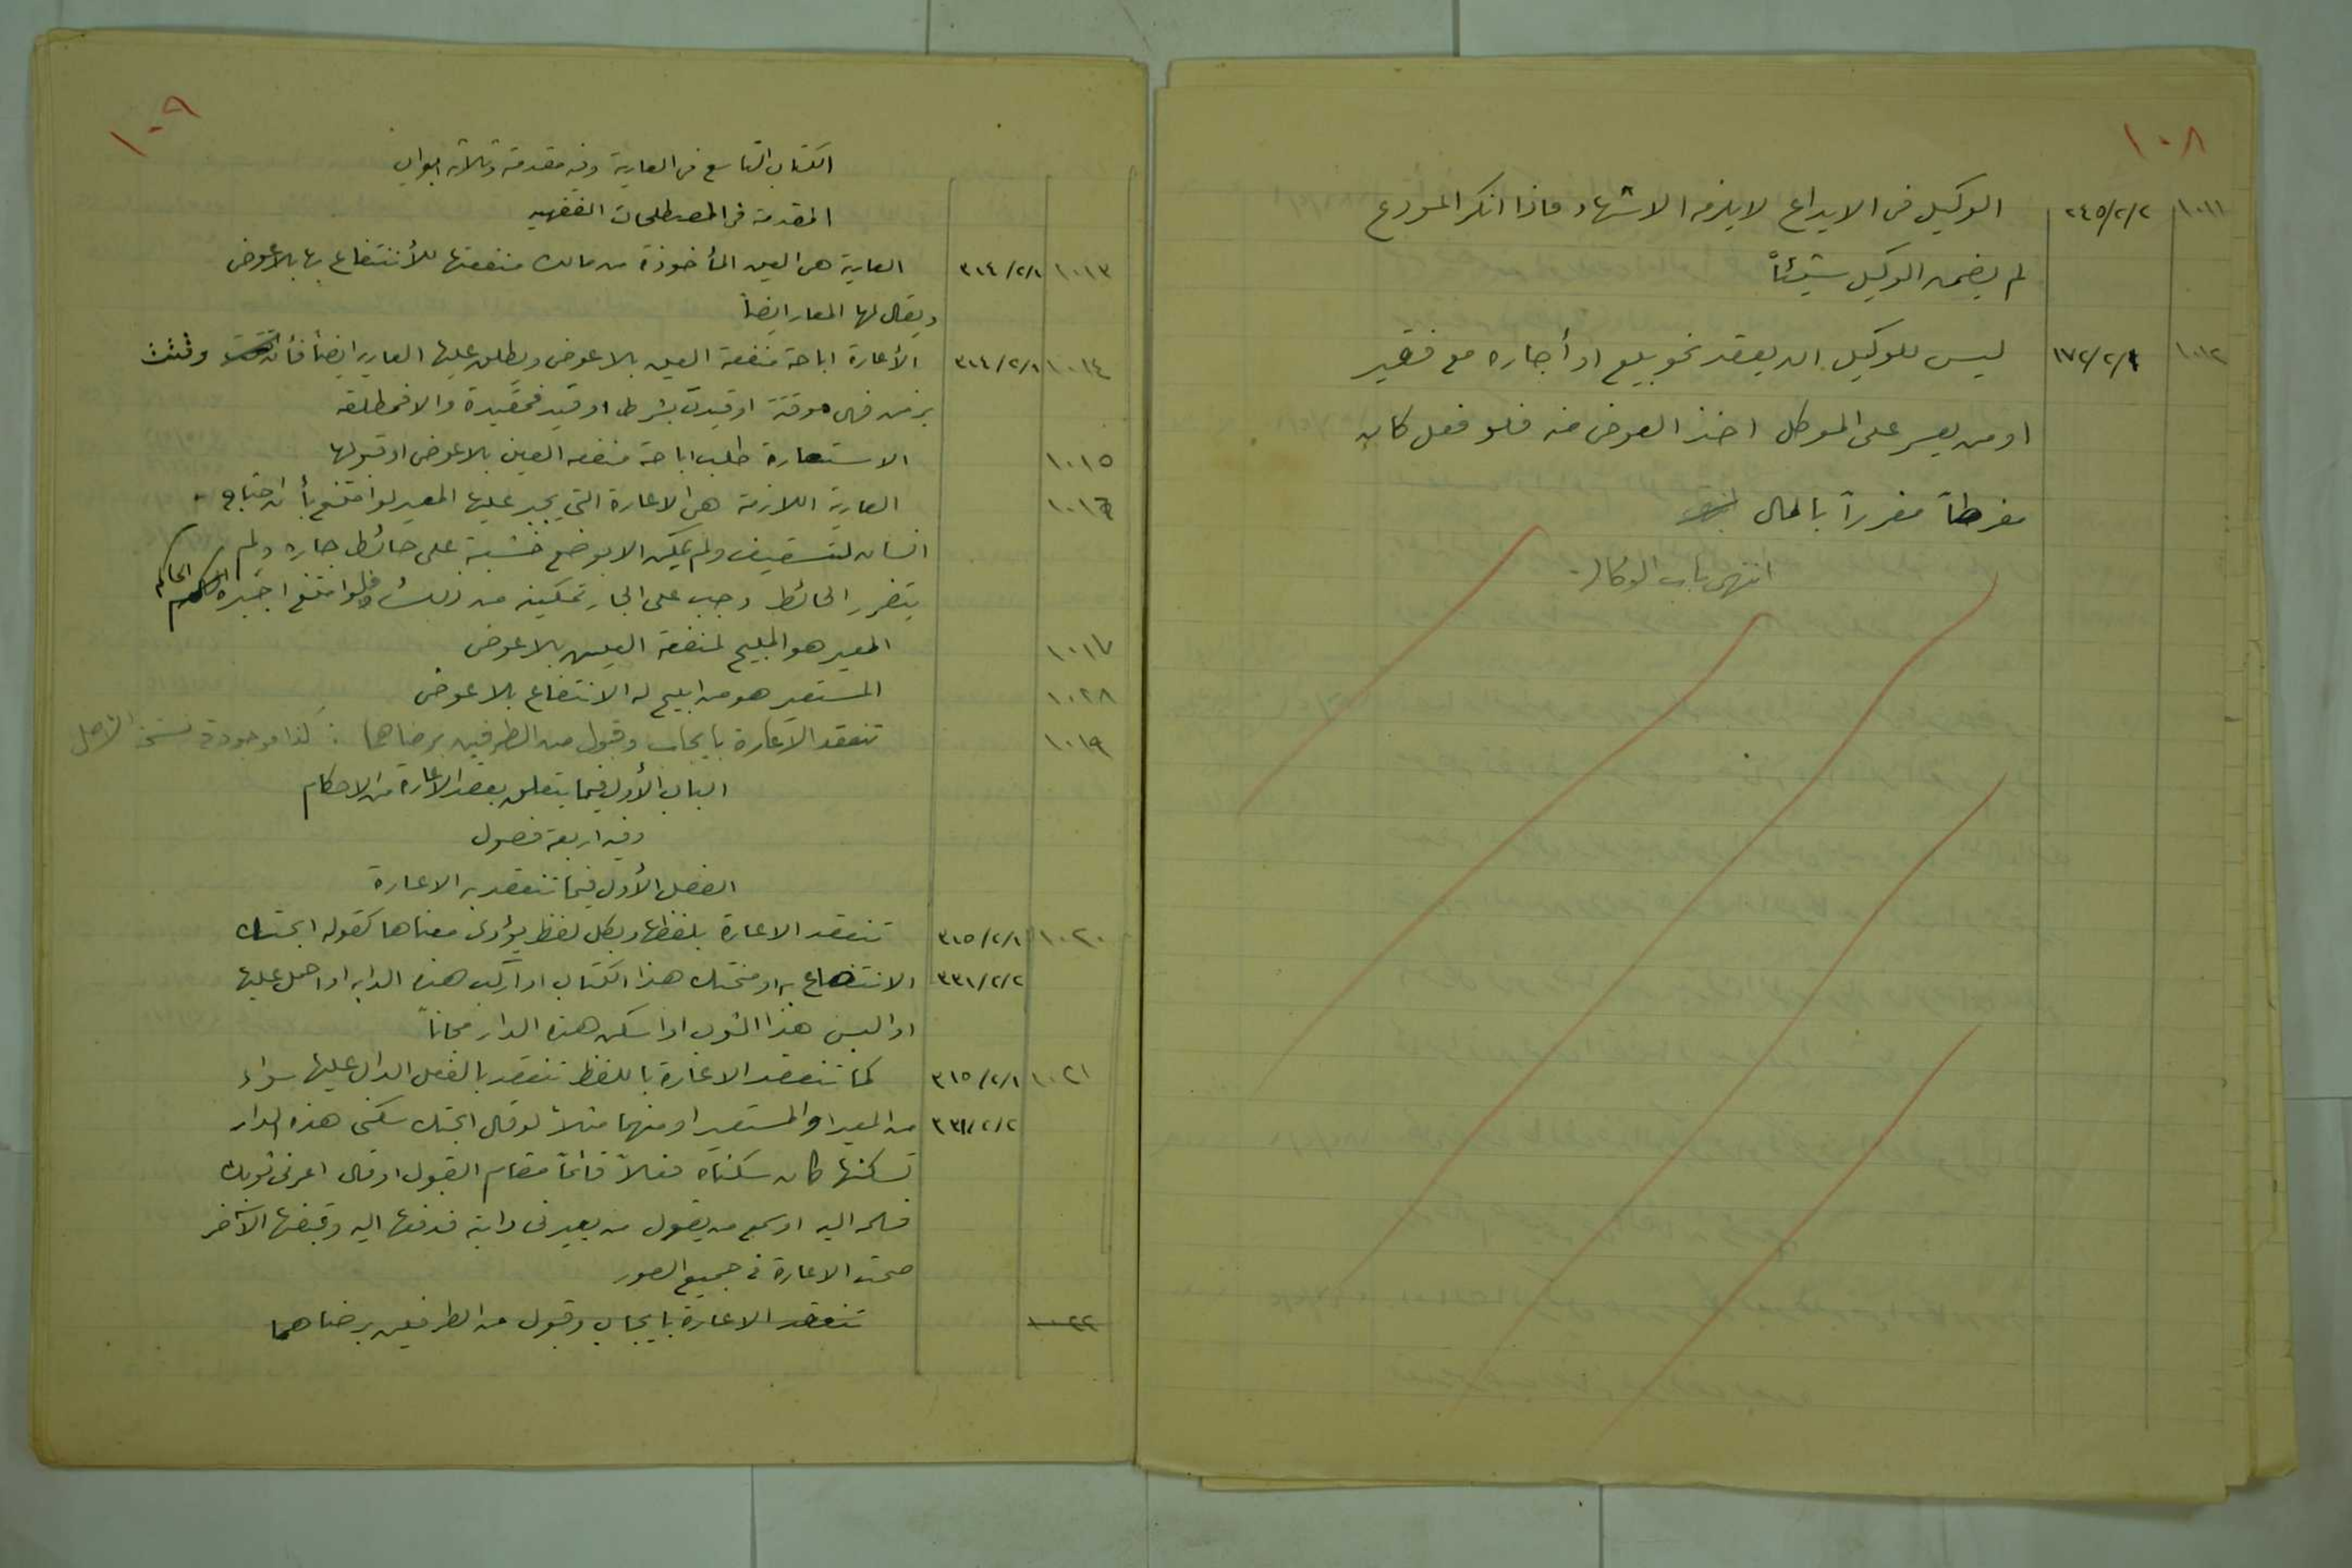 ١٠٨
١٠١١ ٢/٢/٢٤٥ الوكيل في الايداع لا يلزمه الاشهاد فاذا انكر المودع
لم يضمن الوكيل شيئاً
١٠١٢ ١٧٢/٢/١ ليس للوكيل ان يعقد نحو بيع او أجاره مع فقير
او من يعسر على الموكل اخذ العوض منه فلو فعل كان
مفرطاً مغرراً بالمال
انتهى باب الوكالة
١٠٩
الكتاب التاسع في العارية وفيه مقدمة وثلاثة ابواب
المقدمة في المصطلحات الفقهيه
١٠١٣ ٣١٤/٢/١ العارية هي العين المأخوذة من مالك منفعتها للأنتفاع بها بلا عوض
ويقال لها المعار ايضاً
١٠١٤ ٣١٤/٢/١ الأعارة اباحة منفعة العين بلا عوض ويطلق عليها العارية ايضاً فأن وقتت
بزمن فهي موقتة او قيدت بشرط او قيد فمقيدة والا فمطلقه
١٠١٥ الاستعارة طلب اباحة منفعه العين بلا عوض او قبولها
١٠١٦ العارية اللازمة هي الاعارة التي يجبر عليها المعير لو امتنع بأن احتاج
انسان لتسقيف ولم يمكن الا بوضع خشبة على حائط جاره ولم
يتضرر الحائط وجب على الجار تمكينه من ذلك فلو امتنع اجبره الحاكم
١٠١٧ المعير هو المبيح لمنفعة العين بلا عوض
١٠٢٨ المستعير هو من ابيح له الانتفاع بلا عوض
١٠١٩ تنعقد الاعارة بايجاب وقبول من الطرفين برضاهما : كذا موجودة في نسخة الاصل
الباب الأول فيما يتعلق بعقد الاعارة من الاحكام
وفيه اربعة فصول
الفصل الأول فيما تنعقد به الاعارة
١٠٢٠ ٣١٥/٢/١ تنعقد الاعارة بلفظها وبكل لفظ يؤدي معناها كقوله ابحتك
٣٣١/٢/٢ الانتفاع به او منحتك هذا الكتاب او اركب هذه الدابه او احمل عليها
او البس هذا الثوب او اسكن هذه الدار مجاناً
١٠٢١ ٣١٥/٢/١ كما تنعقد الاعارة باللفظ تنعقد بالفعل الدال عليها سواء
٣٣١/٢/٢ من المعير او المستعير او منهما مثلاً لو قال ابحتك سكنى هذه الدار
فسكنها كان سكناه فعلاً قائماً مقام القبول او قال اعرني ثوبك
فسلمه اليه او سمع من يقول من يعيرني دابة فدفعها اليه وقبضها الآخر
صحت الاعارة في جميع الصور
١٠٢٢ تنعقد الاعارة بايجاب وقبول من الطرفين برضاهما